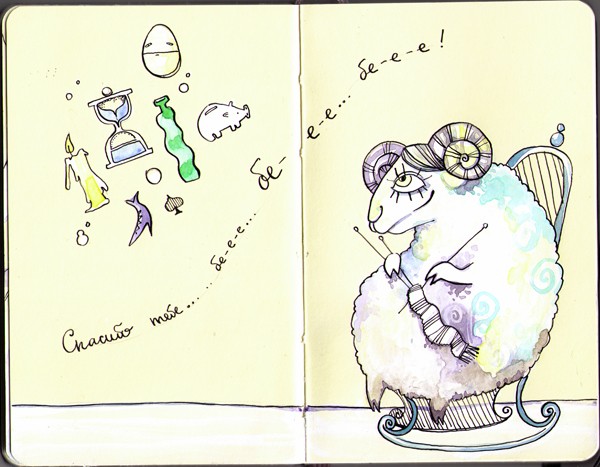 Спасибо тебе..... бе-е-е... бе-е-е... бе-е-е!